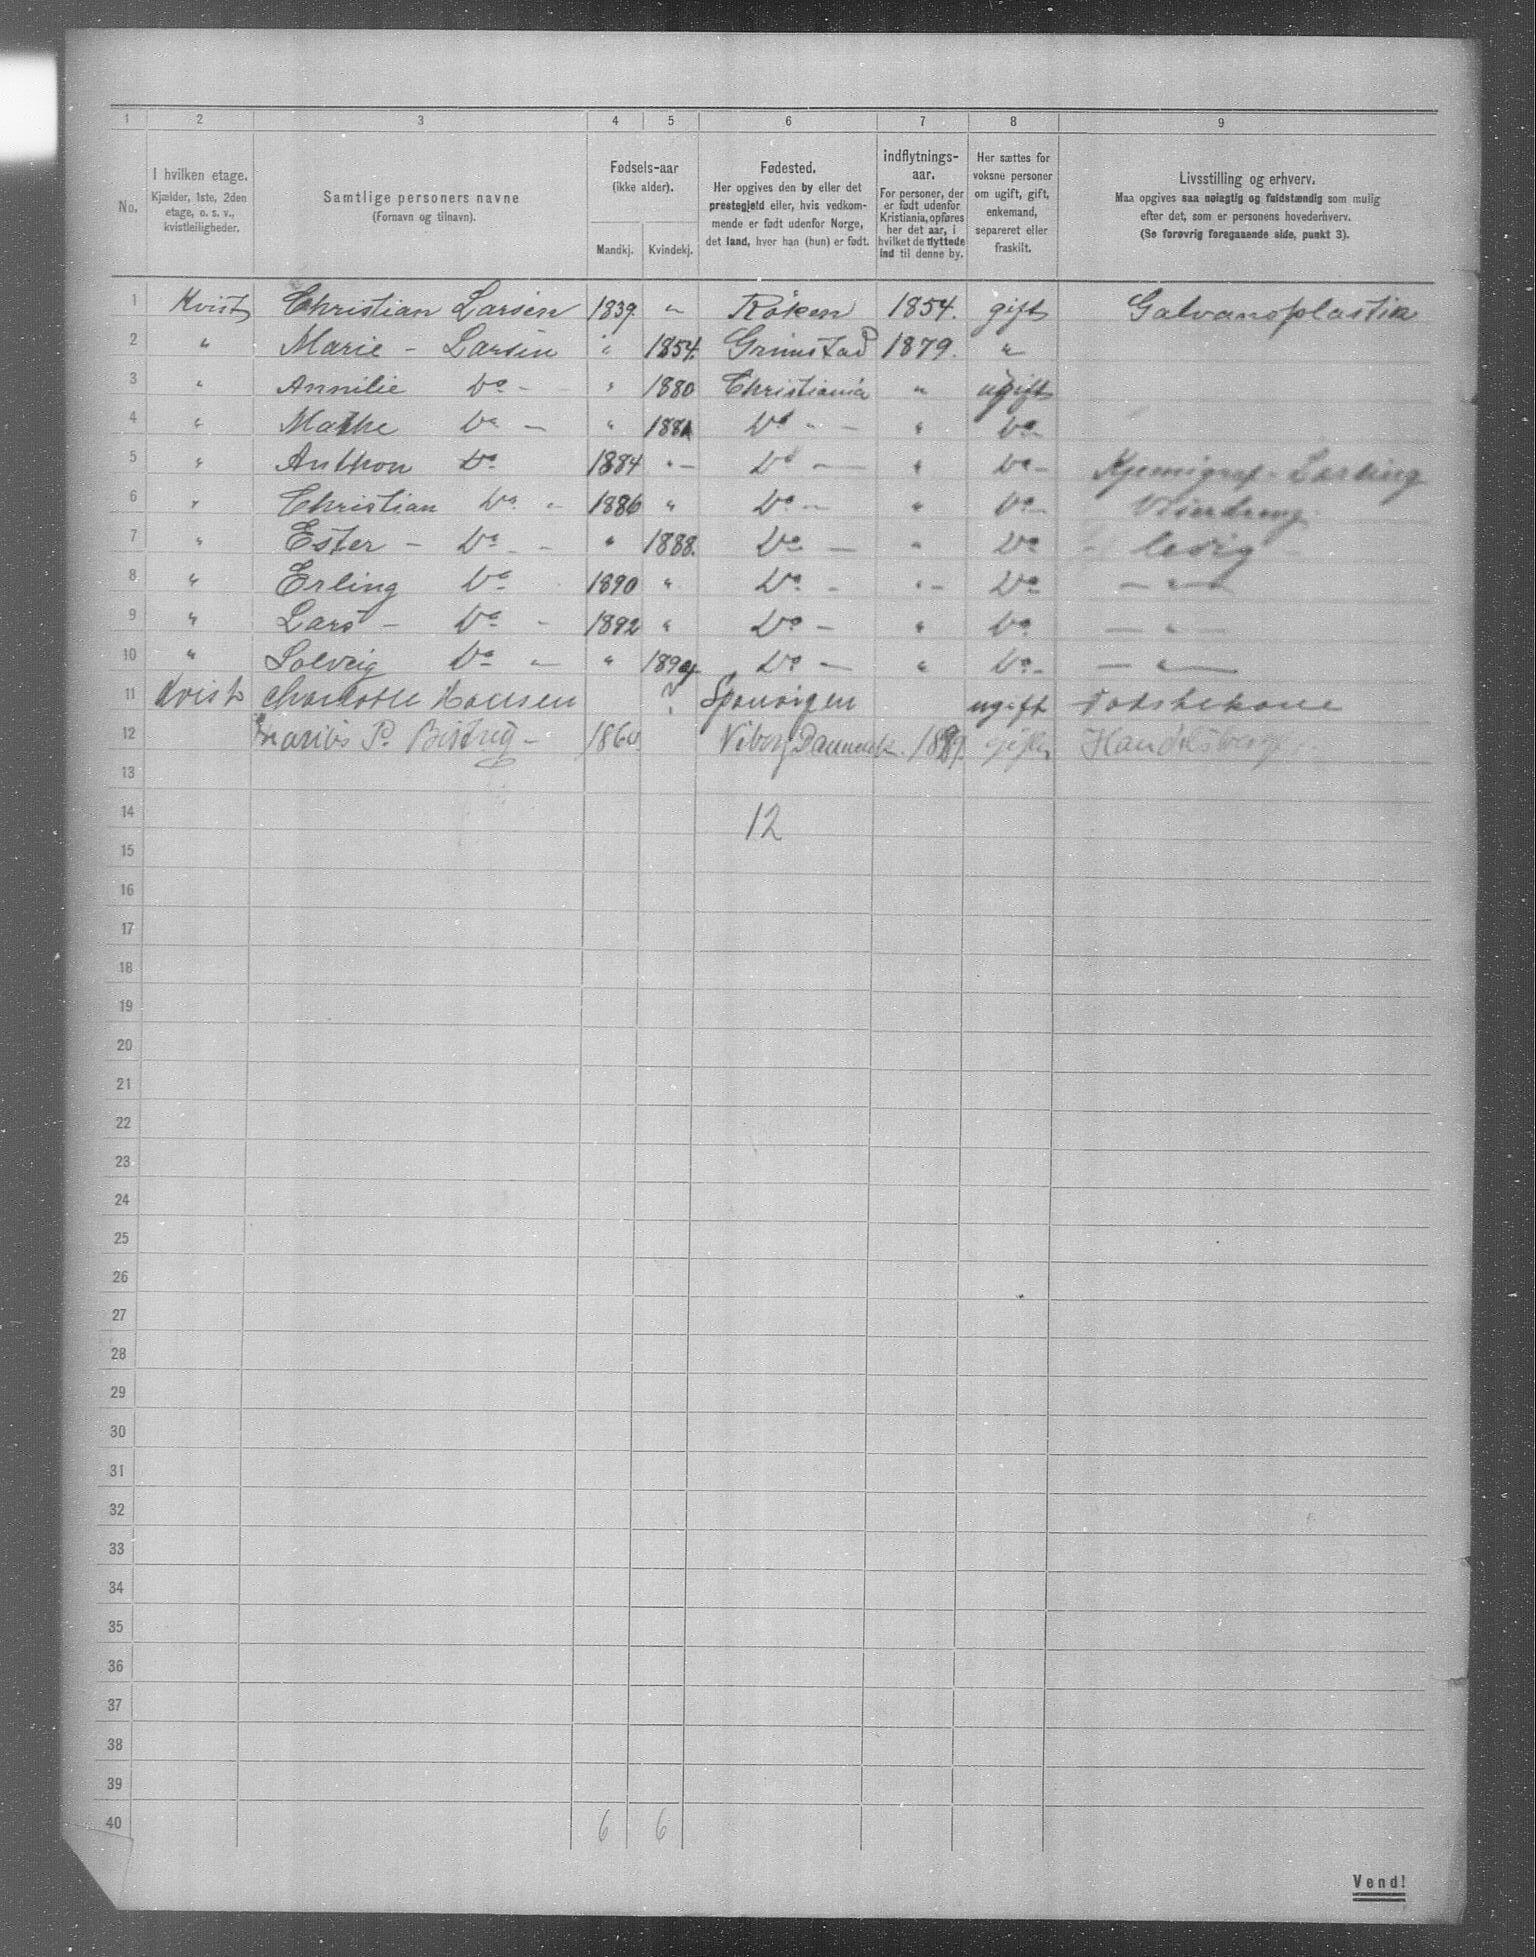 1 2 3 4 5 6 7 8 9
No.
I hvilken etage.
Kjælder, 1ste, 2den
etage, o. s. v.,
kvistleiligheder.
Samtlige personers navne
(Fornavn og tilnavn).
Fødsels-aar
(ikke alder).
Mandkj. Kvindekj.
Fødested.
Her opgives den by eller det
prestegjeld eller, hvis vedkom-
mende er født udenfor Norge,
det land, hvor han (hun) er født.
Indflytnings-
aar.
For personer, der
er født udenfor
Kristiania, opføres
her det aar, i
hvilket de flyttede
ind til denne by.
Her sættes for
voksne personer
om ugift, gift,
enkemand,
separeret eller
fraskilt.
Livsstilling og erhverv.
Maa opgives saa nøiagtig og fuldstændig som mulig
efter det, som er personens hovederhverv.
(Se forøvrig foregaaende side, punkt 3).
1 Kvist Christian Larsen 1839. " Röken 1854. gift Galvanoplastik
2 " Marie - Larsen " 1854. Grimstad 1879. "
3 " Annilie Do - " 1880 Christiania " ugift
4 " Mathe Do - " Do " - " Do
5 " Anthon Do 1884 " - Do - " Do -
6 " Christian Do " 1886 " Do - " Do -
7 " Ester - Do - - " 1888. Do - " Do - ledig -
8 " Erling Do 1890 " Do - " - Do - " -
9 " Lars - Do - 1892 " Do - " Do - " -
10 " Solveig Do - " Do - " Do - - " -
11 Kvist Charlotte Hansen ? ugift Vadskekone
12 Marius P. - 186 Viborg Danmark. gift
13
14 12
15
16
17
18
19
20
21
22
23
24
25
26
27
28
29
30
31
32
33
34
35
36
37
38
39
40 6 6
Vend!